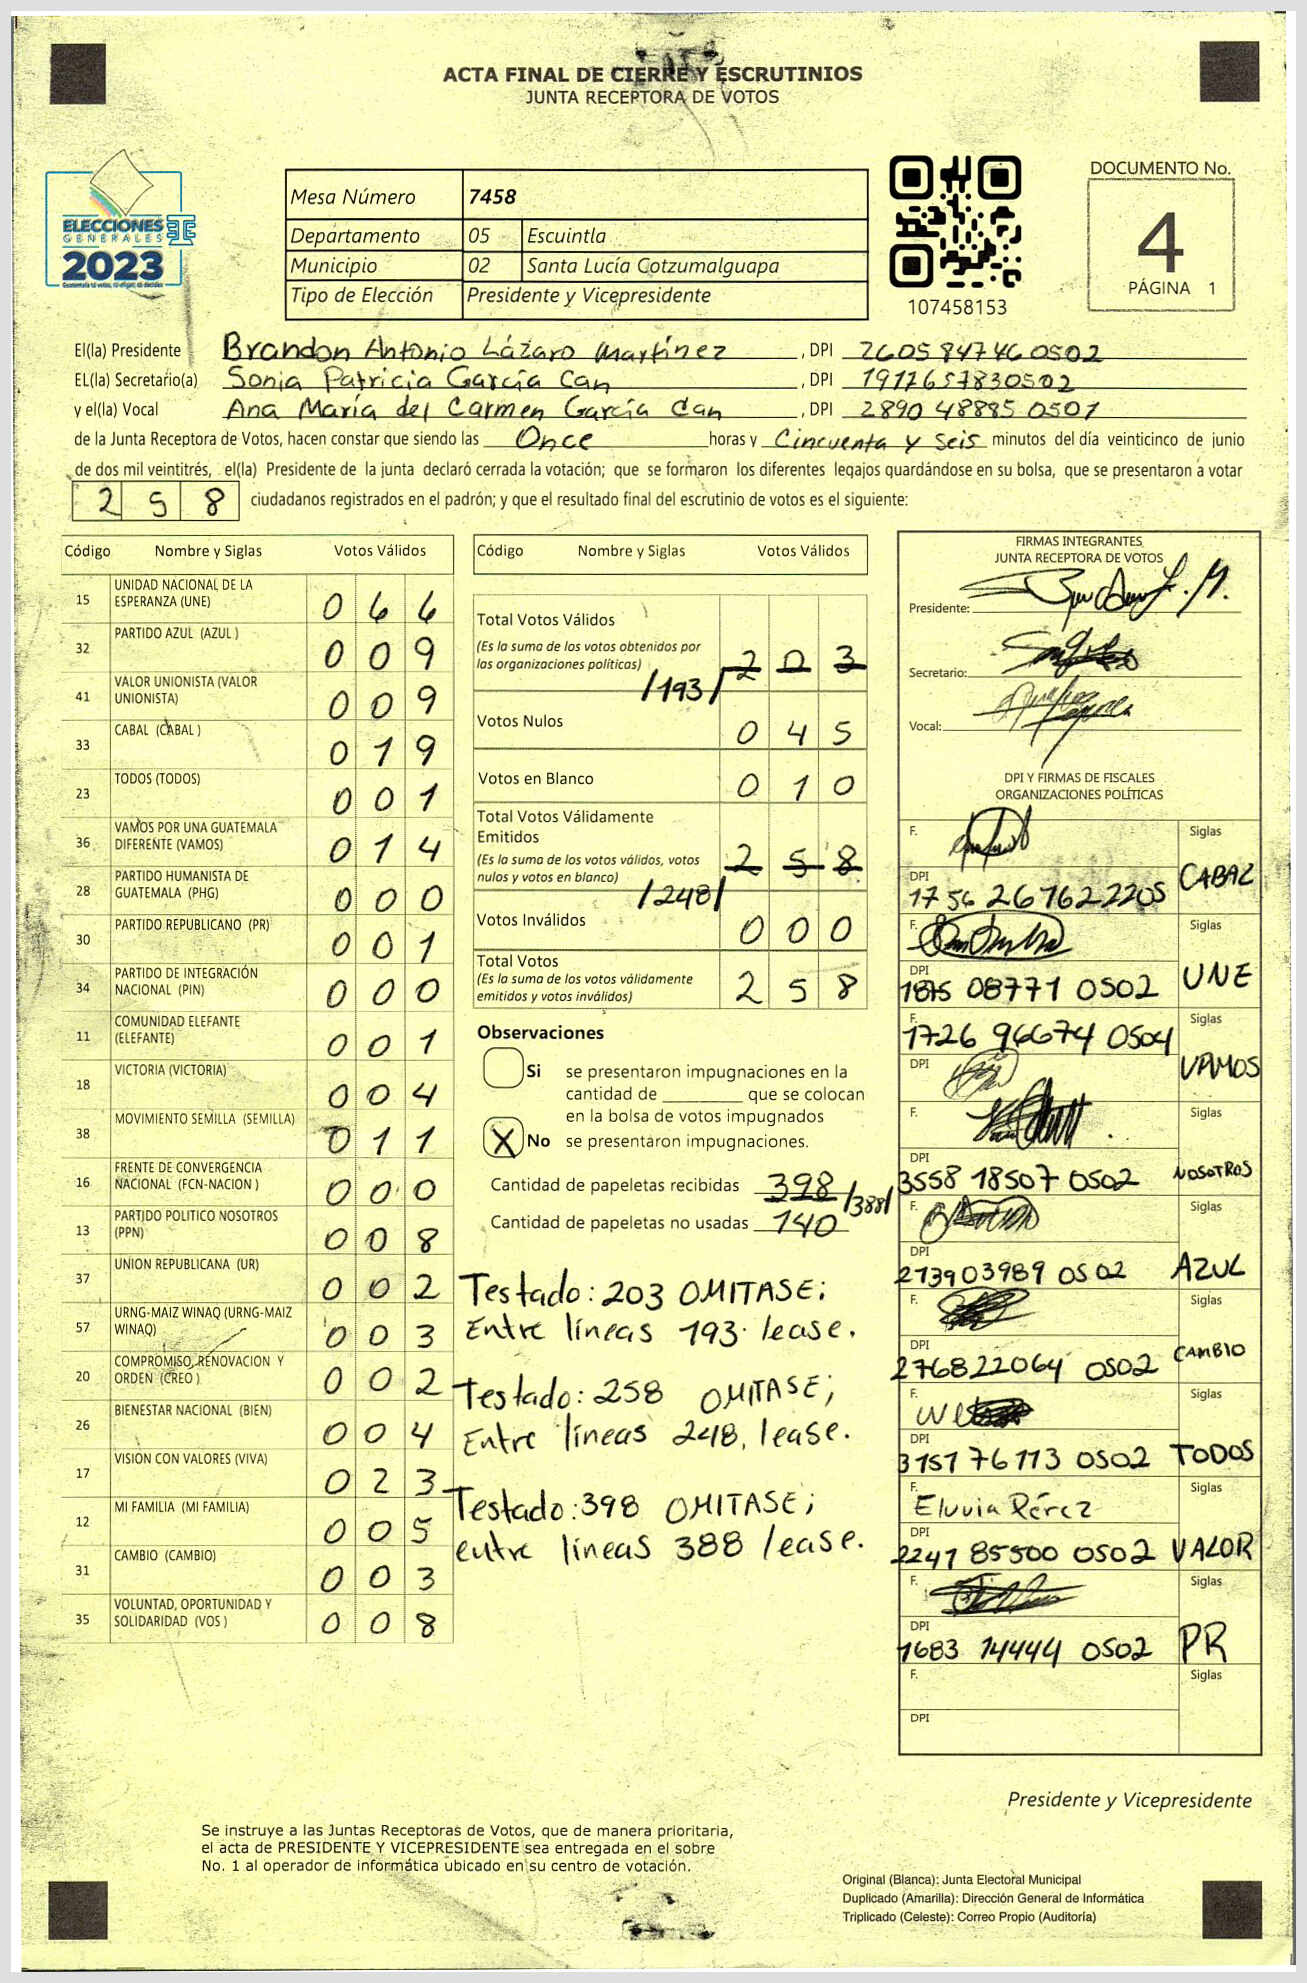 ACTA FINAL DE CIERRE Y ESCRUTINIOS
JUNTA RECEPTORA DE VOTOS
ELECCIONES
GENERALES
2023
Mesa Número 7458
Departamento 05 Escuintla
Municipio 02 Santa Lucía Cotzumalguapa
Tipo de Elección Presidente y Vicepresidente
107458153
DOCUMENTO No.
4
PÁGINA 1
El(la) Presidente Brandon Antonio Lázaro Martínez , DPI 2605 84746 0502
EL(la) Secretario(a) Sonia Patricia García Can , DPI 1917657830502
y el(la) Vocal Ana María del Carmen García Can , DPI 2890 48885 0501
de la Junta Receptora de Votos, hacen constar que siendo las Once horas y Cincuenta y seis minutos del día veinticinco de junio
de dos mil veintitrés, el(la) Presidente de la junta declaró cerrada la votación; que se formaron los diferentes legajos guardándose en su bolsa, que se presentaron a votar
258 ciudadanos registrados en el padrón; y que el resultado final del escrutinio de votos es el siguiente:
Código Nombre y Siglas Votos Válidos
15 UNIDAD NACIONAL DE LA ESPERANZA (UNE) 066
32 PARTIDO AZUL (AZUL ) 009
41 VALOR UNIONISTA (VALOR UNIONISTA) 009
33 CABAL (CABAL ) 019
23 TODOS (TODOS) 001
36 VAMOS POR UNA GUATEMALA DIFERENTE (VAMOS) 014
28 PARTIDO HUMANISTA DE GUATEMALA (PHG) 000
30 PARTIDO REPUBLICANO (PR) 001
34 PARTIDO DE INTEGRACIÓN NACIONAL (PIN) 000
11 COMUNIDAD ELEFANTE (ELEFANTE) 001
18 VICTORIA (VICTORIA) 004
38 MOVIMIENTO SEMILLA (SEMILLA) 011
16 FRENTE DE CONVERGENCIA NACIONAL (FCN-NACION ) 000
13 PARTIDO POLITICO NOSOTROS (PPN) 008
37 UNION REPUBLICANA (UR) 002
57 URNG-MAIZ WINAQ (URNG-MAIZ WINAQ) 003
20 COMPROMISO, RENOVACION Y ORDEN (CREO ) 002
26 BIENESTAR NACIONAL (BIEN) 004
17 VISION CON VALORES (VIVA) 023
12 MI FAMILIA (MI FAMILIA) 005
31 CAMBIO (CAMBIO) 003
35 VOLUNTAD, OPORTUNIDAD Y SOLIDARIDAD (VOS ) 008
Código Nombre y Siglas Votos Válidos
Total Votos Válidos
(Es la suma de los votos obtenidos por
las organizaciones políticas) /193/ 203
Votos Nulos 045
Votos en Blanco 010
Total Votos Válidamente
Emitidos
(Es la suma de los votos válidos, votos
nulos y votos en blanco) /248/ 258
Votos Inválidos 000
Total Votos
(Es la suma de los votos válidamente
emitidos y votos inválidos) 258
Observaciones
Si se presentaron impugnaciones en la
cantidad de ________ que se colocan
en la bolsa de votos impugnados
X No se presentaron impugnaciones.
Cantidad de papeletas recibidas 398 /388/
Cantidad de papeletas no usadas 140
Testado: 203 OMITASE;
Entre líneas 193 lease.
Testado: 258 OMITASE;
Entre líneas 248, lease.
Testado: 398 OMITASE;
entre líneas 388 lease.
FIRMAS INTEGRANTES
JUNTA RECEPTORA DE VOTOS
Presidente:
Secretario:
Vocal:
DPI Y FIRMAS DE FISCALES
ORGANIZACIONES POLÍTICAS
F. Siglas
DPI 1756 26762 2205 CABAL
F. Siglas
DPI 1875 08771 0502 UNE
F. 1726 96674 0504 Siglas
DPI VAMOS
F. Siglas
DPI 3558 18507 0502 NOSOTROS
F. Siglas
DPI 273903989 0502 AZUL
F. Siglas
DPI 276822064 0502 CAMBIO
F. Siglas
DPI 3151 76113 0502 TODOS
F. Eluvia Pérez Siglas
DPI 2247 85500 0502 VALOR
F. Siglas
DPI 1683 14444 0502 PR
F. Siglas
DPI
Presidente y Vicepresidente
Se instruye a las Juntas Receptoras de Votos, que de manera prioritaria,
el acta de PRESIDENTE Y VICEPRESIDENTE sea entregada en el sobre
No. 1 al operador de informática ubicado en su centro de votación.
Original (Blanca): Junta Electoral Municipal
Duplicado (Amarilla): Dirección General de Informática
Triplicado (Celeste): Correo Propio (Auditoría)